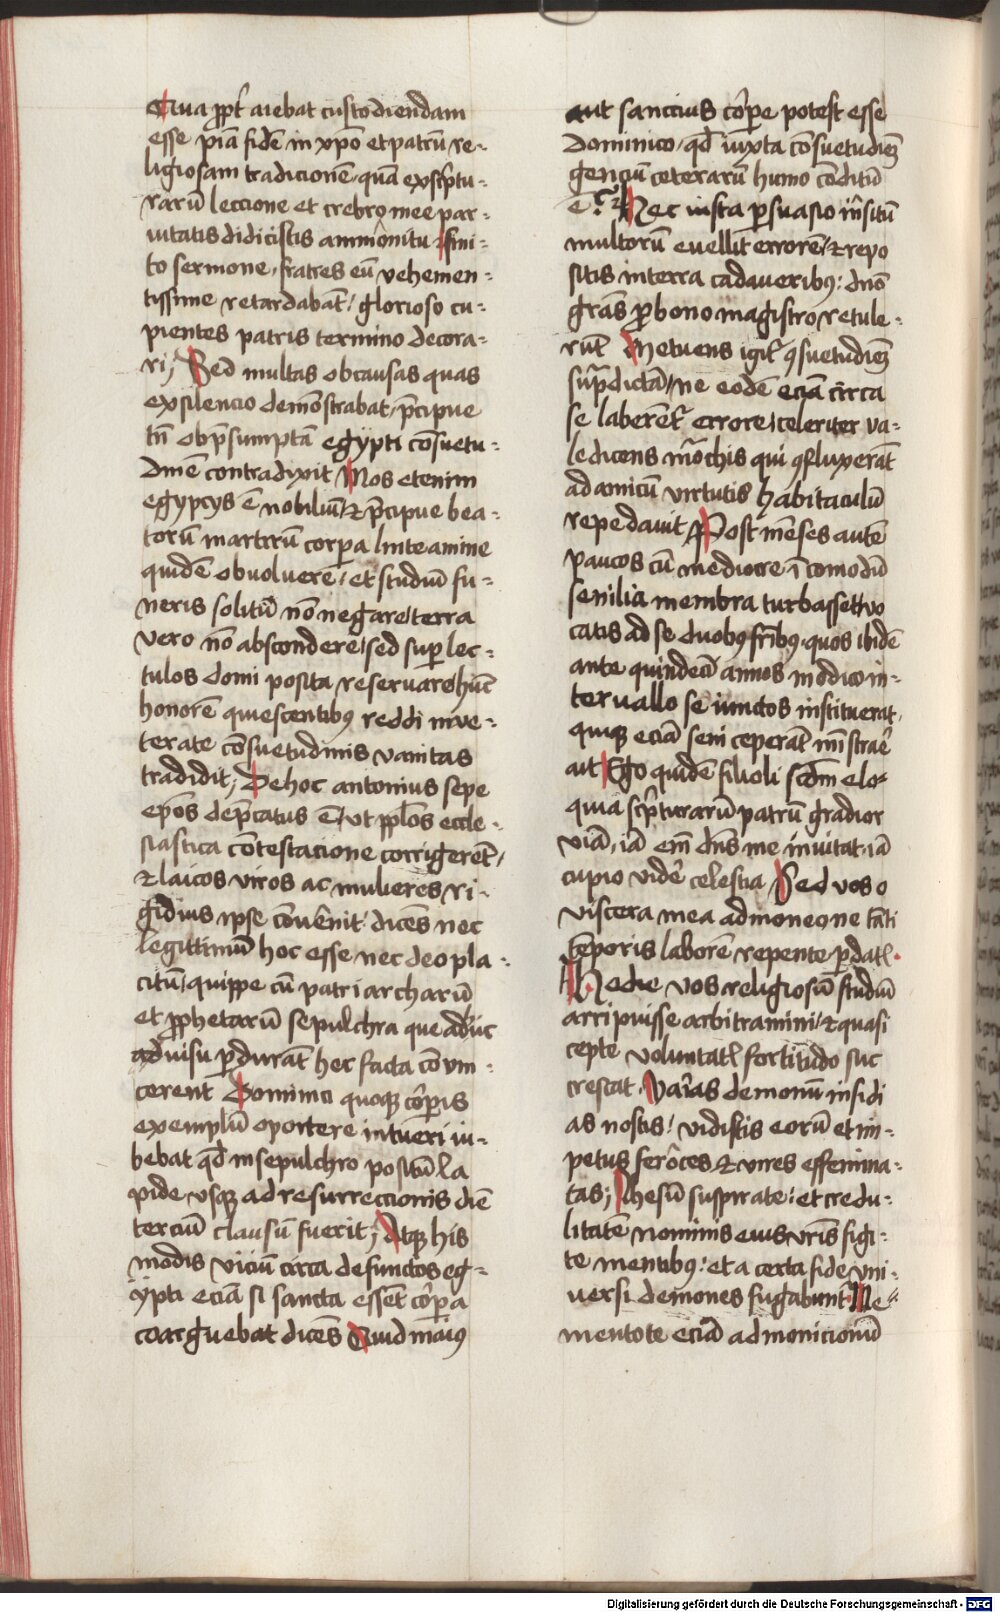 Qua ppt̄ aiebat custodiendam
esse piā fidē in xpō et patrū re-
ligiosam tradicionē quā ex sc̄ptu-
rarū leccione et crebro mee par-
uitatis didicistis ammōnitu fini-
to sermone fratres eū vehemen-
tissime retardabāt glorioso cu-
pientes patris termino decora-
ri; Sed multas ob causas quas
ex silencio demōstrabat p̄cipue
tn̄ ob p̄sumptā egypti cōsuetu-
dinē contradixit Mos etenim
egypcys ē nobiliū & p̄cipue bea-
torū martirū corpa linteamine
quidē obuoluere et studiū fu-
neris solitū nō negare terra
vero nō abscondere sed sup lec-
tulos domi posita reseruare hūc
honorē quiescentibꝰ reddi inve-
terate cōsuetudinis vanitas
tradidit; De hoc antonius sepe
epōs dep̄catus ē ut pplōs eccle-
siastica cōtestacione corrigerēt
& laicos viros ac mulieres ri-
gidius ipse cōuēnit dicēs nec
legittimū hoc esse nec deo pla-
citū quippe cū patriarcharū
et pphetarū sepulchra que adhuc
ad visu pdurāt hec facta cōuin-
cerent Dominici quoqꝫ cōrpis
exemplū oportere intueri iu-
bebat qd̄ in sepulchro positū la
pide vsqꝫ ad resurreccionis diē
terciū clausū fuerit; Atqꝫ his
modis viciū circa defunctos eg-
ypti eciā si sancta essēt cōrpa
coarguebat dicēs Quid maiꝰ
aut sanctius cōrpe potest esse
dominico qd̄ iuxta cōsuetudiēꝫ
genciū ceterarū humo cōditū
ē? Hec iusta psuasio īnsitū
multorū euellit errorē & repo
sitis in terra cadaueribꝰ dnō
grās p bono magistro retule-
rūt Metuens igit̄ ꝯsuetudiēꝫ
sup̄dictā ne eodē eciā circa
se laberēt̄ errore celeriter va-
ledicens mōchis qui ꝯfluxerāt
ad amicū virtutis habitaculū
repedauit Post mēses autē
paucos cū mediocre ī comodū
senilia membra turbasset vo
catis ad se duobꝰ frībꝰ quos ibidē
ante quindecī annos modico in-
teruallo se iunctos instituerat
quiqꝫ eciā seni ceperāt mīstrare
ait Ego quidē filioli scd̄m elo-
quia sc̄pturarū patrū gradior
viā iā em̄ dn̄s me inuitat iā
cupio videre celestia Sed vos o
viscera mea admoneo ne tāti
tēporis laborē repente pdatꝭ
Hodie vos religiosū studiū
arripuisse arbitramini & quasi
cepte voluntatꝭ fortitudo suc
crescat Varias demonū insidi
as nostis vidistis eorū et im-
petus ferōces & vires effemina-
tas; Ihesū suspirate et credu-
litatē nominis eius vrīs figi-
te mentibꝰ et a certa fide vni-
uersi demones fugabunt̄ Me-
mentote eciā admonicionū
Digitalisierung gefördert durch die Deutsche Forschungsgemeinschaft - DFG